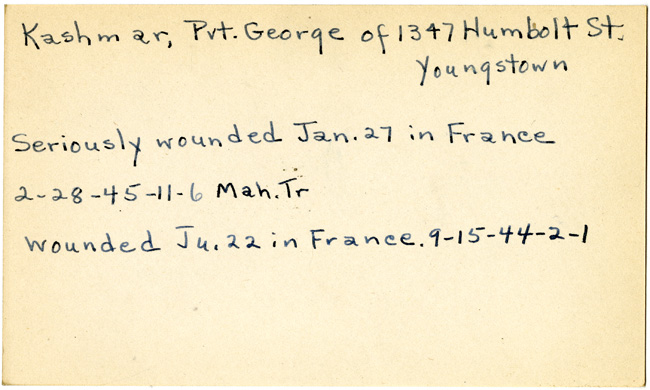 Kashmar, Pvt. George of 1347 Humbolt St.
Youngstown
Seriously wounded Jan. 27 in France
2-28-45-11-6 Mah. Tr
Wounded Ju. 22 in France. 9-15-44-2-1